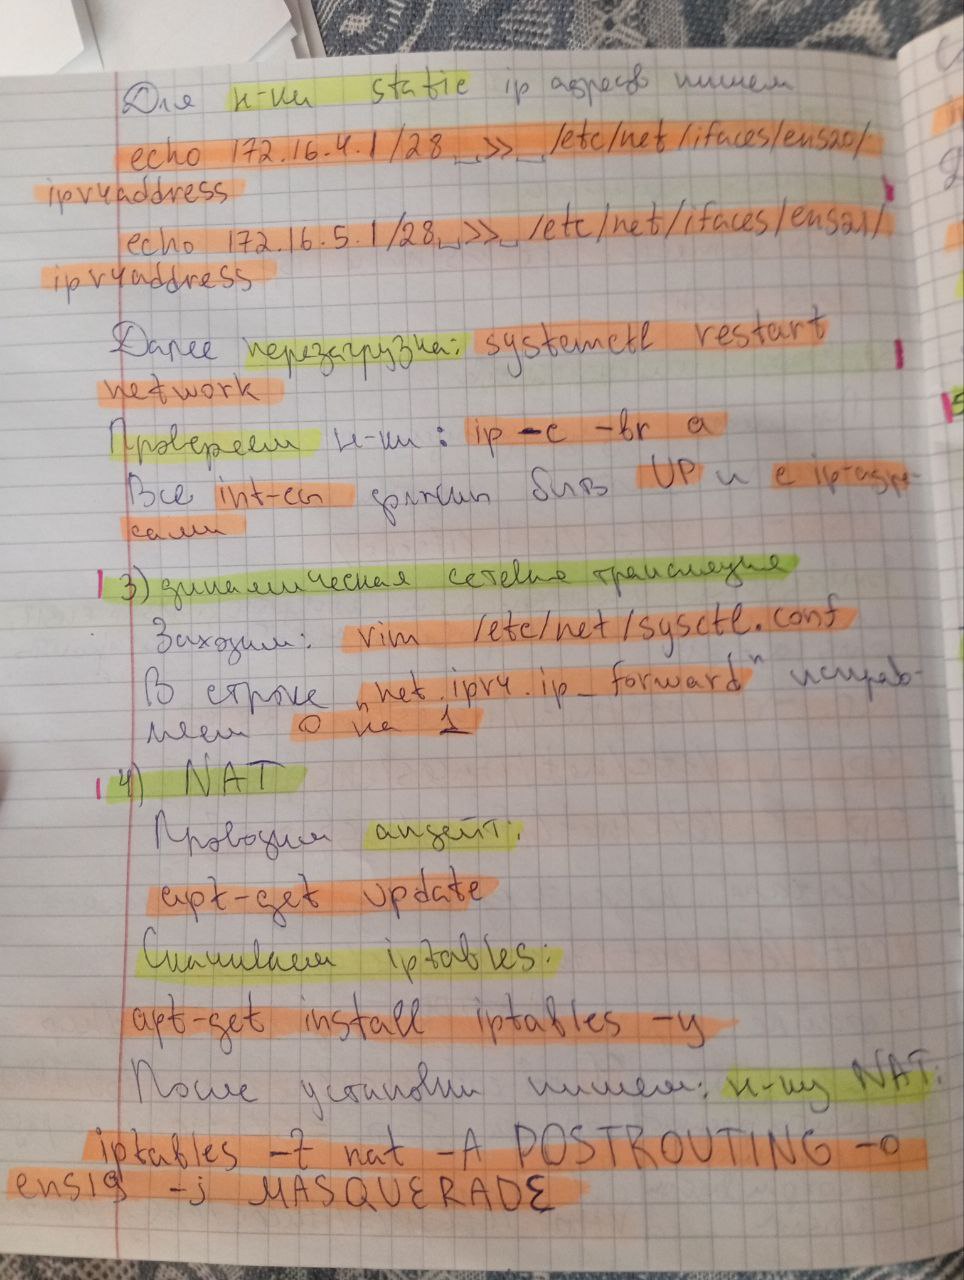 Для н-ки static ip адресов пишем
echo 172.16.4.1/28 >> /etc/net/ifaces/ens20/
ipv4address
echo 172.16.5.1/28 >> /etc/net/ifaces/ens21/
ipv4address
Далее перезагрузка: systemctl restart
network
Проверяем н-ки: ip -c -br a
Все int-сы должны быть UP и с ip-адре-
сами
3) динамическая сетевая трансляция
Заходим: vim /etc/net/sysctl.conf
В строке "net.ipv4.ip_forward" исправ-
ляем 0 на 1
4) NAT
Проводим апдейт:
apt-get update
Скачиваем iptables:
apt-get install iptables -y
После установки пишем: н-ку NAT:
iptables -t nat -A POSTROUTING -o
ens19 -j MASQUERADE